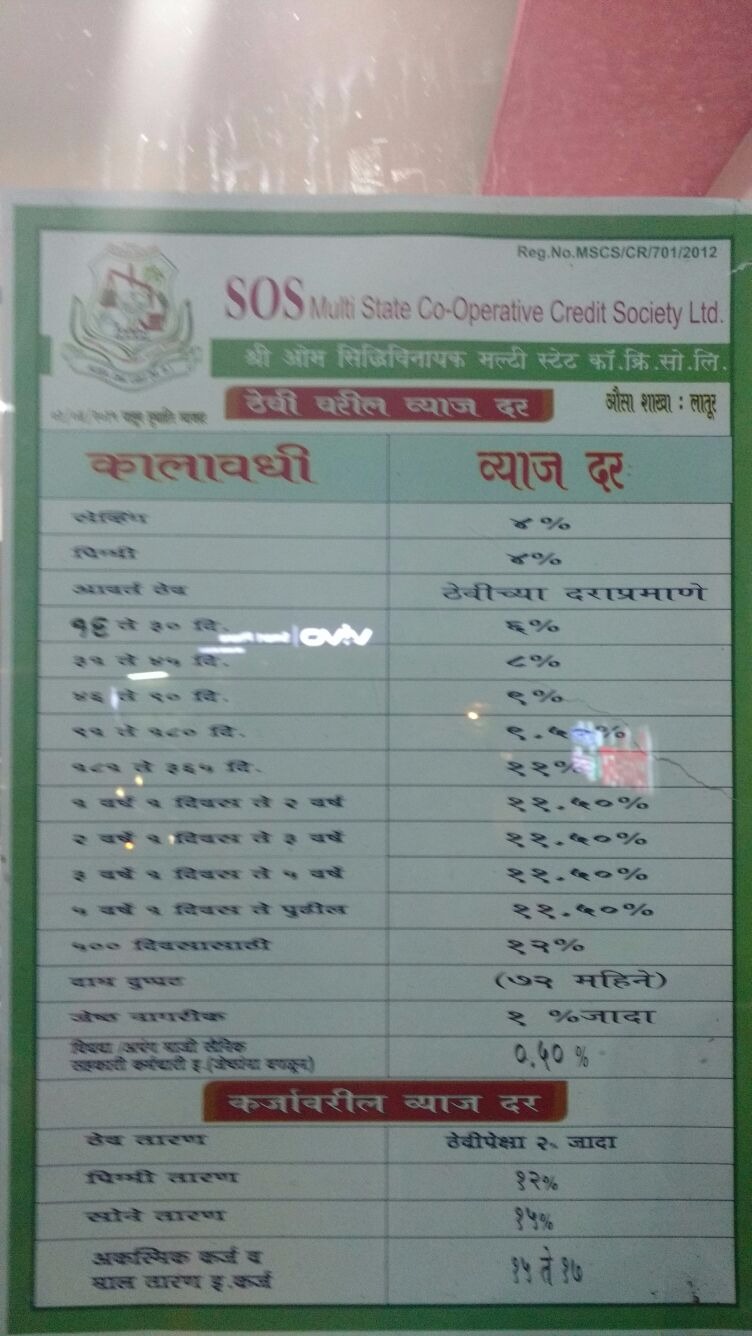 Reg.No.MSCS/CR/701/2012
SOS Multi State Co-Operative Credit Society Ltd.
श्री ओम सिद्धिविनायक मल्टी स्टेट कॉ.क्रि.सो.लि.
ठेवी वरील व्याज दर
औसा शाखा : लातूर
कालावधी व्याज दर
सेव्हिंग ४%
पिग्मी ४%
आवर्त ठेव ठेवीच्या दराप्रमाणे
१६ ते ३० दि. ६%
३१ ते ४५ दि. ८%
४६ ते ९० दि. ९%
९१ ते १८० दि. ९.५०%
१८१ ते ३६५ दि. ११%
१ वर्ष १ दिवस ते २ वर्ष ११.५०%
२ वर्षे १ दिवस ते ३ वर्षे ११.५०%
३ वर्षे १ दिवस ते ५ वर्षे ११.५०%
५ वर्षे १ दिवस ते पुढील ११.५०%
५०० दिवसासाठी १२%
दाम दुप्पट (७२ महिने)
जेष्ठ नागरीक १ %जादा
विधवा /अपंग माजी सैनिक
सहकारी कर्मचारी इ.(जेष्ठांना वगळून) ०.५० %
कर्जावरील व्याज दर
ठेव तारण ठेवीपेक्षा २% जादा
पिग्मी तारण १२%
सोने तारण १५%
अकस्मिक कर्ज व
माल तारण इ.कर्ज १५ ते १७